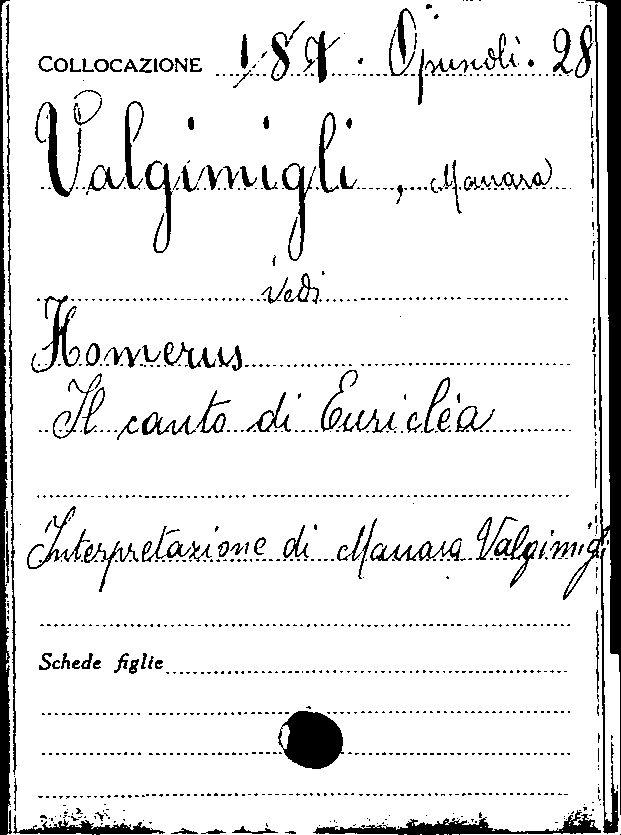 COLLOCAZIONE 187. Opuscoli. 28
Valgimigli, Manara
vedi
Homerus
Il canto di Euricléa
Interpretazione di Manara Valgimigli
Schede figlie